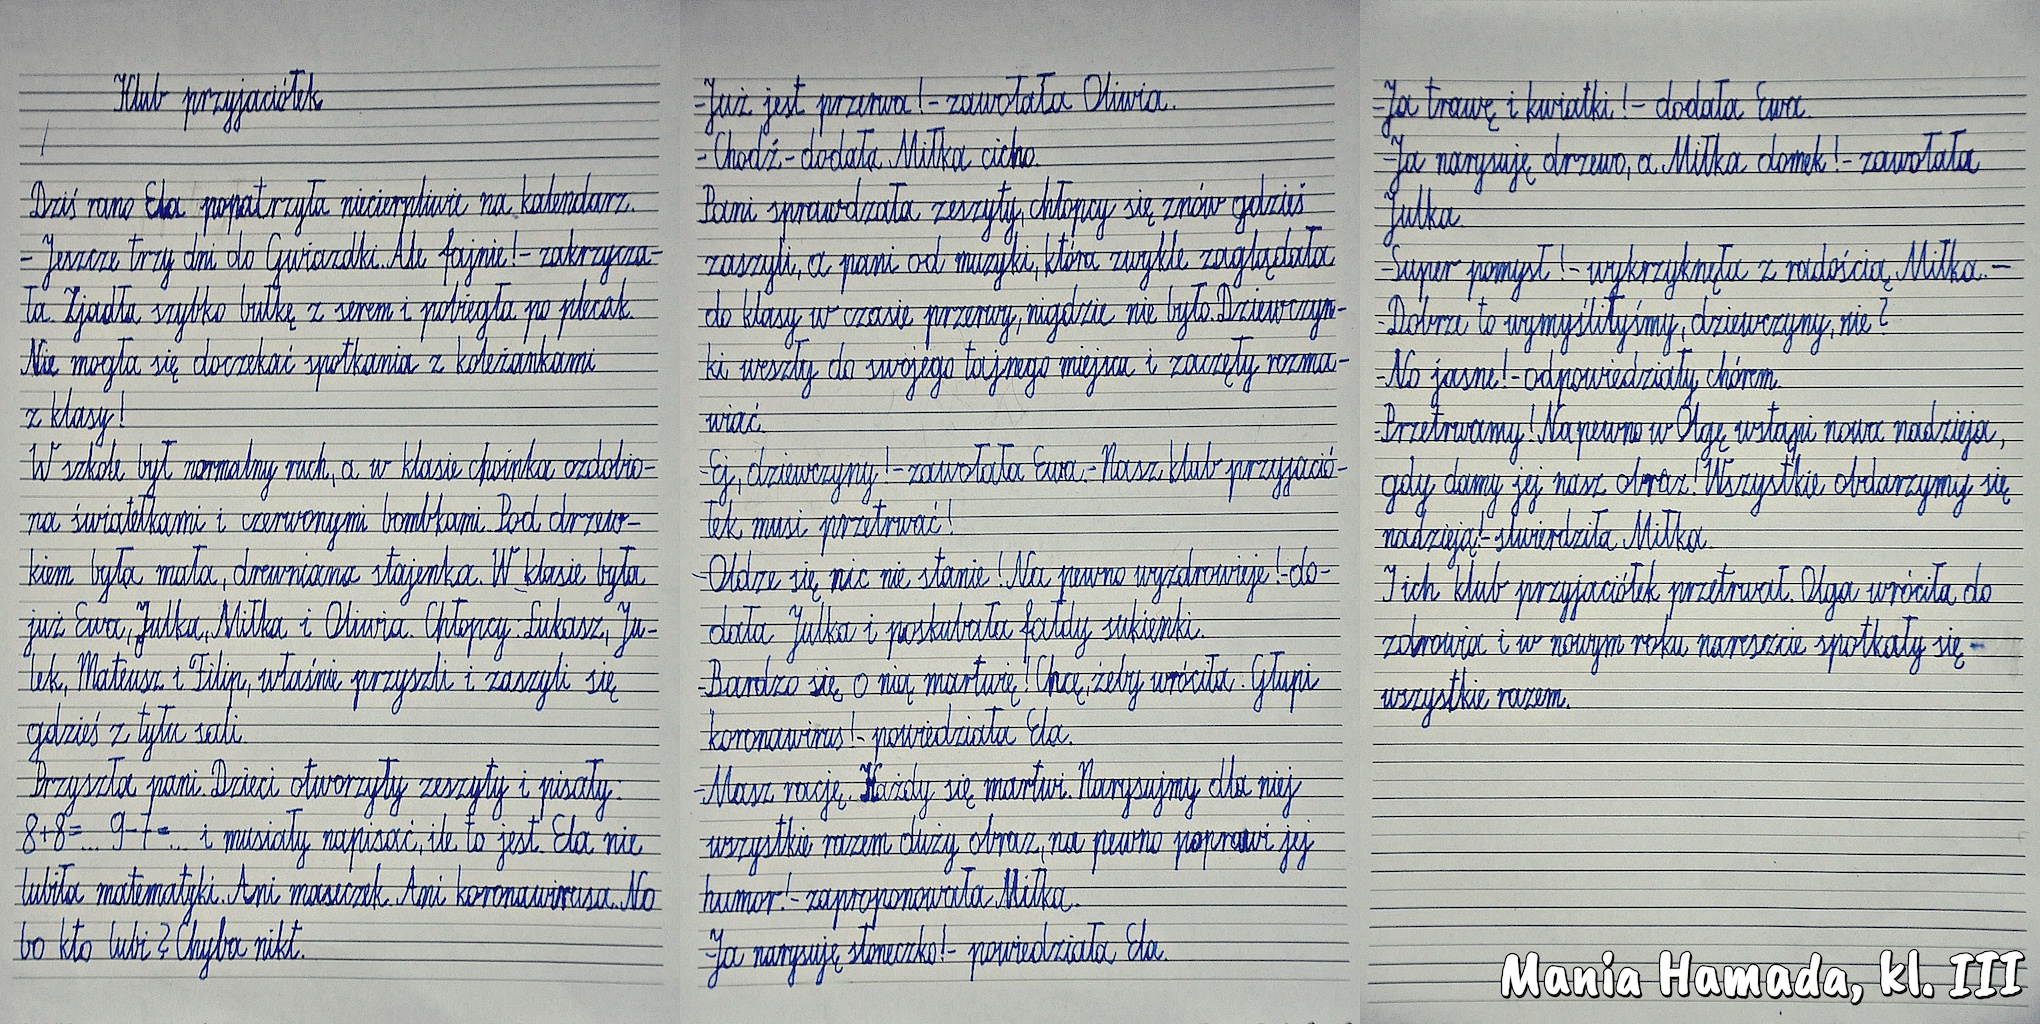 Klub przyjaciółek
Dziś rano Ela popatrzyła niecierpliwie na kalendarz.
- Jeszcze trzy dni do Gwiazdki. Ale fajnie! - zakrzycza-
ła. Zjadła szybko bułkę z serem i pobiegła po plecak.
Nie mogła się doczekać spotkania z koleżankami
z klasy!
W szkole był normalny ruch, a w klasie choinka ozdobio-
na światełkami i czerwonymi bombkami. Pod drzew-
kiem była mała, drewniana stajenka. W klasie była
już Ewa, Julka, Miłka i Oliwia. Chłopcy: Łukasz, Ju-
lek, Mateusz i Filip, właśnie przyszli i zaszyli się
gdzieś z tyłu sali.
Przyszła pani. Dzieci otworzyły zeszyty i pisały:
8+8=... 9-7=... i musiały napisać, ile to jest. Ela nie
lubiła matematyki. Ani maseczek. Ani koronawirusa. No
bo kto lubi? Chyba nikt.
- Już jest przerwa! - zawołała Oliwia.
- Chodź - dodała Miłka cicho.
Pani sprawdzała zeszyty, chłopcy się znów gdzieś
zaszyli, a pani od muzyki, która zwykle zaglądała
do klasy w czasie przerwy, nigdzie nie było. Dziewczyn-
ki weszły do swojego tajnego miejsca i zaczęły rozma-
wiać.
- Ej, dziewczyny! - zawołała Ewa. - Nasz klub przyjació-
łek musi przetrwać!
- Oldze się nic nie stanie! Na pewno wyzdrowieje! - do-
dała Julka i poskubała fałdy sukienki.
- Bardzo się o nią martwię! Chcę, żeby wróciła. Głupi
koronawirus! - powiedziała Ela.
- Masz rację. Każdy się martwi. Narysujmy dla niej
wszystkie razem duży obraz, na pewno poprawi jej
humor! - zaproponowała Miłka.
- Ja narysuję słoneczko! - powiedziała Ela.
- Ja trawę i kwiatki! - dodała Ewa.
- Ja narysuję drzewo, a Miłka domek! - zawołała
Julka.
- Super pomysł! - wykrzyknęła z radością Miłka. -
- Dobrze to wymyśliłyśmy, dziewczyny, nie?
- No jasne! - odpowiedziały chórem.
- Przetrwamy! Na pewno w Olgę wstąpi nowa nadzieja,
gdy damy jej nasz obraz! Wszystkie obdarzymy się
nadzieją! - stwierdziła Miłka.
I ich klub przyjaciółek przetrwał. Olga wróciła do
zdrowia i w nowym roku nareszcie spotkały się -
wszystkie razem.
Mania Hamada, kl. III